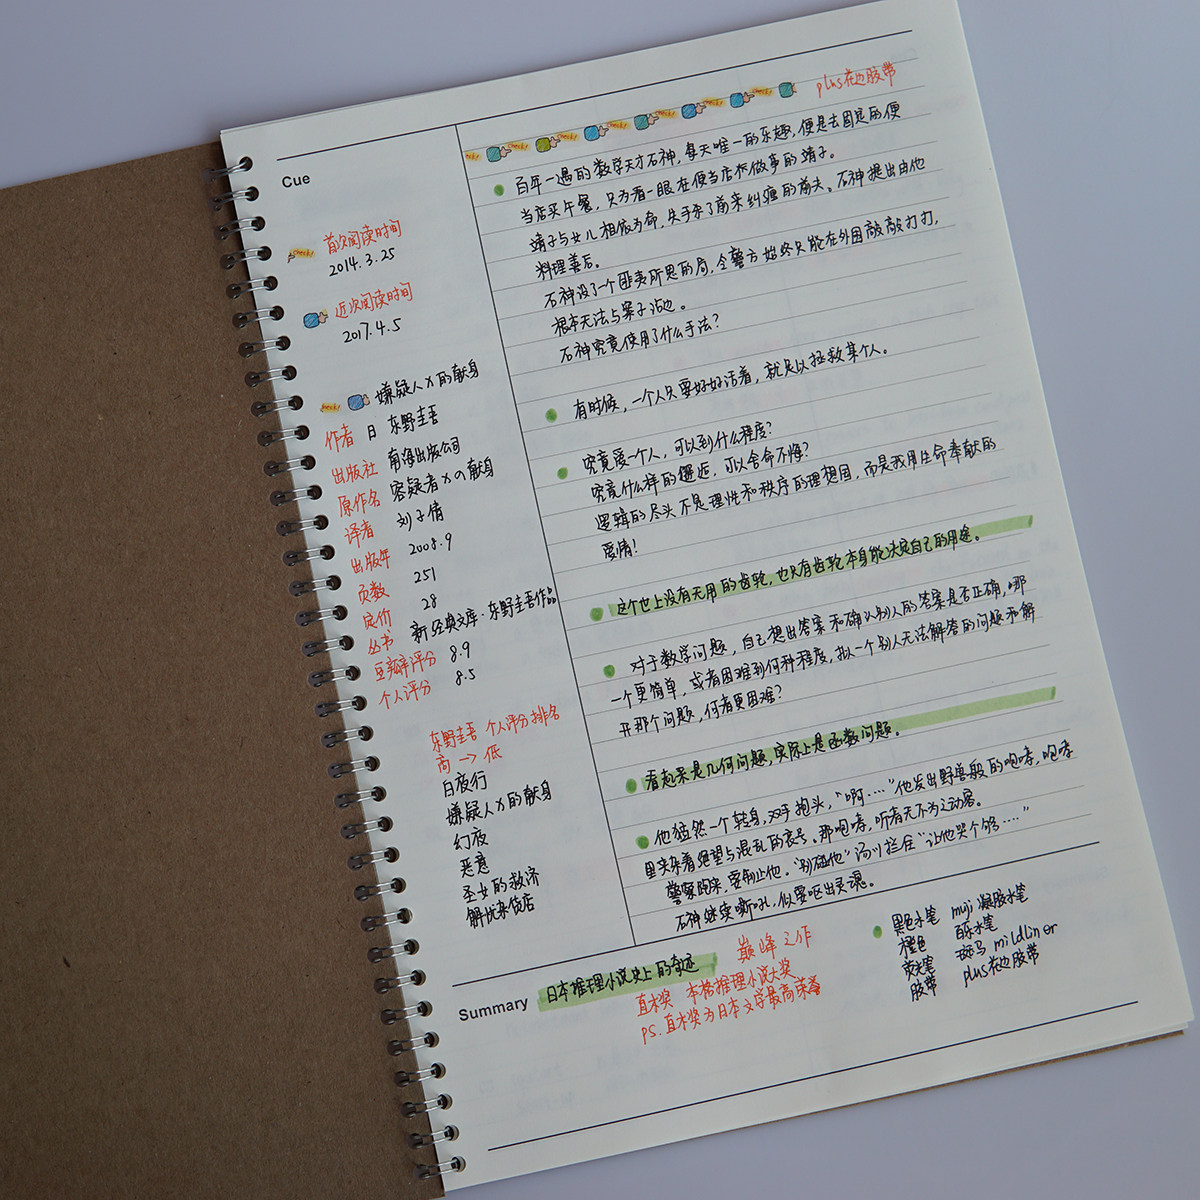 Cue
首次阅读时间
2014.3.25
近次阅读时间
2017.4.5
嫌疑人X的献身
作者 日 东野圭吾
出版社 南海出版公司
原作名 容疑者Xの献身
译者 刘子倩
出版年 2008.9
页数 251
定价 28
丛书 新经典文库·东野圭吾作品
豆瓣评分 8.9
个人评分 8.5
东野圭吾 个人评分排名
高 → 低
白夜行
嫌疑人X的献身
幻夜
恶意
圣女的救济
解忧杂货店
plus花边胶带
check! check! check! check! check! check!
百年一遇的数学天才石神，每天唯一的乐趣，便是去固定的便
当店买午餐，只为看一眼在便当店做事的靖子。
靖子与女儿相依为命，失手杀了前来纠缠的前夫。石神提出由他
料理善后。
石神设了一个匪夷所思的局，令警方始终只能在外围敲敲打打，
根本无法与案子沾边。
石神究竟使用了什么手法？
有时候，一个人只要好好活着，就足以拯救某个人。
究竟爱一个人，可以到什么程度？
究竟什么样的邂逅，可以舍命不悔？
逻辑的尽头不是理性和秩序的理想国，而是我用生命奉献的
爱情！
这个世上没有无用的齿轮，也只有齿轮本身能决定自己的用途。
对于数学问题，自己想出答案和确认别人的答案是否正确，哪
一个更简单，或者困难到何种程度，拟一个别人无法解答的问题和解
开那个问题，何者更困难？
看起来是几何问题，实际上是函数问题。
他猛然一个转身，双手抱头，“啊····”他发出野兽般的咆哮，咆哮
里夹杂着绝望与混乱的哀号。那咆哮，听者无不为之动容。
警察跑来，要制止他。“别碰他”汤川拦住“让他哭个够····”
石神继续嘶吼，似要呕出灵魂。
Summary
日本推理小说史上的奇迹 巅峰之作
直木奖 本格推理小说大奖
PS.直木奖为日本文学最高荣誉
黑色水笔 muji 凝胶水笔
橙色 百乐水笔
荧光笔 斑马 mildlinor
胶带 plus花边胶带